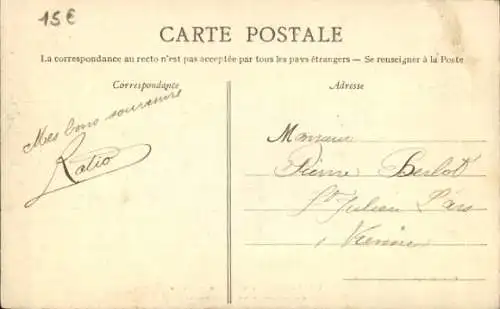 15€
CARTE POSTALE
La correspondance au recto n'est pas acceptée par tous les pays étrangers — Se renseigner à la Poste
Correspondance
Adresse
Mes bons souvenirs
Ratio
Monsieur
Pierre Berlot
St Julien l'ars
Vienne